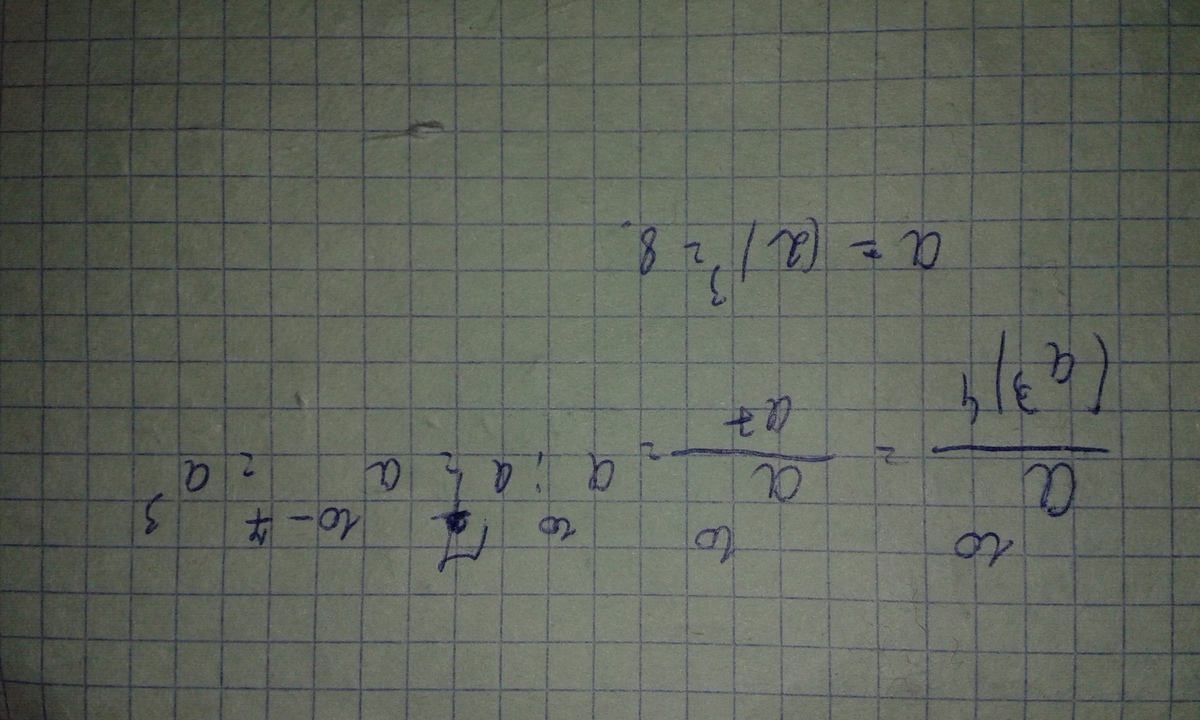 a¹⁰/(a³)⁴ = a¹⁰/a⁷ = a¹⁰ : a⁷ = a¹⁰⁻⁷ = a³
a = (2)³ = 8.